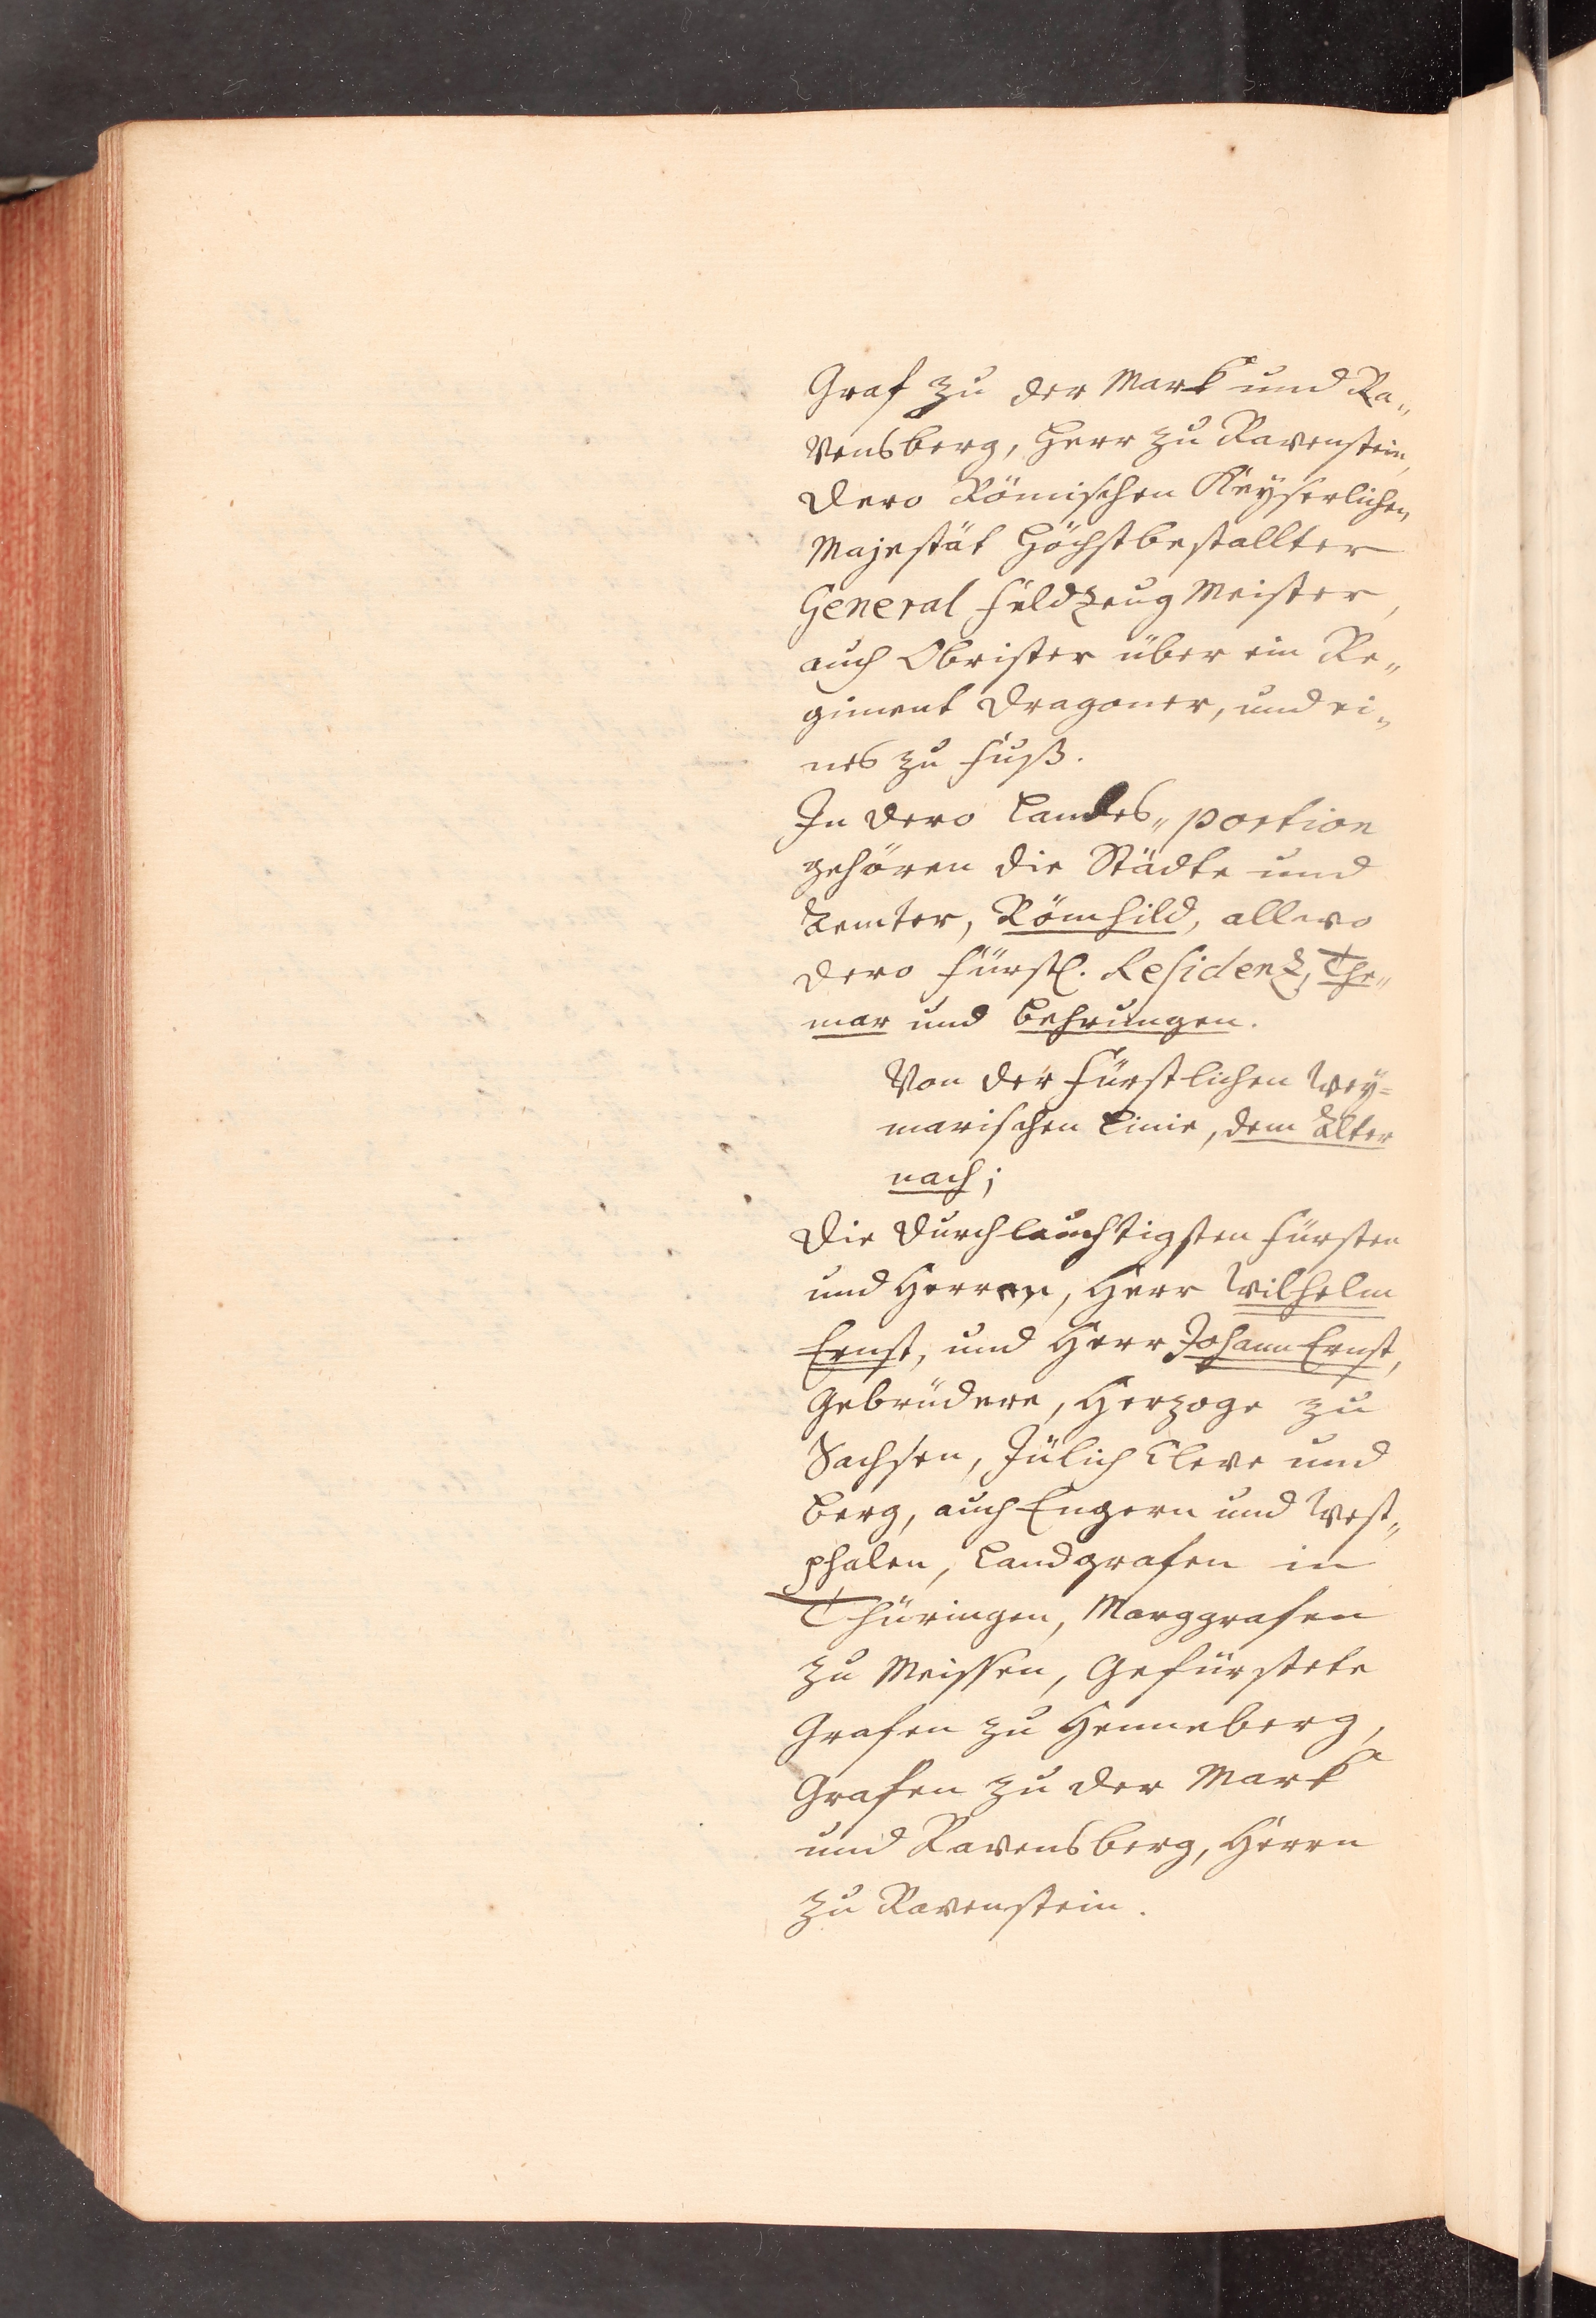 Graf zu der Mark und Ra„
vensberg, Herr zu Ravenstein,
dero Römischen Keyserlichen
Majestät Höchstbestallter
General Feldzeug Meister,
auch Obrister über ein Re„
giment Dragoner, und ei„
nes zu Fuß.
In dero Landes„ portion
gehören die Städte und
Aemter, Römhild, allwo
dero Fürstl. Residenz, The„
mar und Behrungen.
Von der Fürstlichen Wey=
marischen Linie, dem Alter
nach;
Die Durchlauchtigsten Fürsten
und Herren, Herr Wilhelm
Ernst, und Herr Johann Ernst,
Gebrüdere, Herzoge zu
Sachsen, Jülich Cleve und
Berg, auch Engern und West„
phalen, Landgrafen in
Thüringen, Marggrafen
zu Meissen, Gefürstete
Grafen zu Henneberg,
Grafen zu der Mark
und Ravensberg, Herrn
zu Ravenstein.